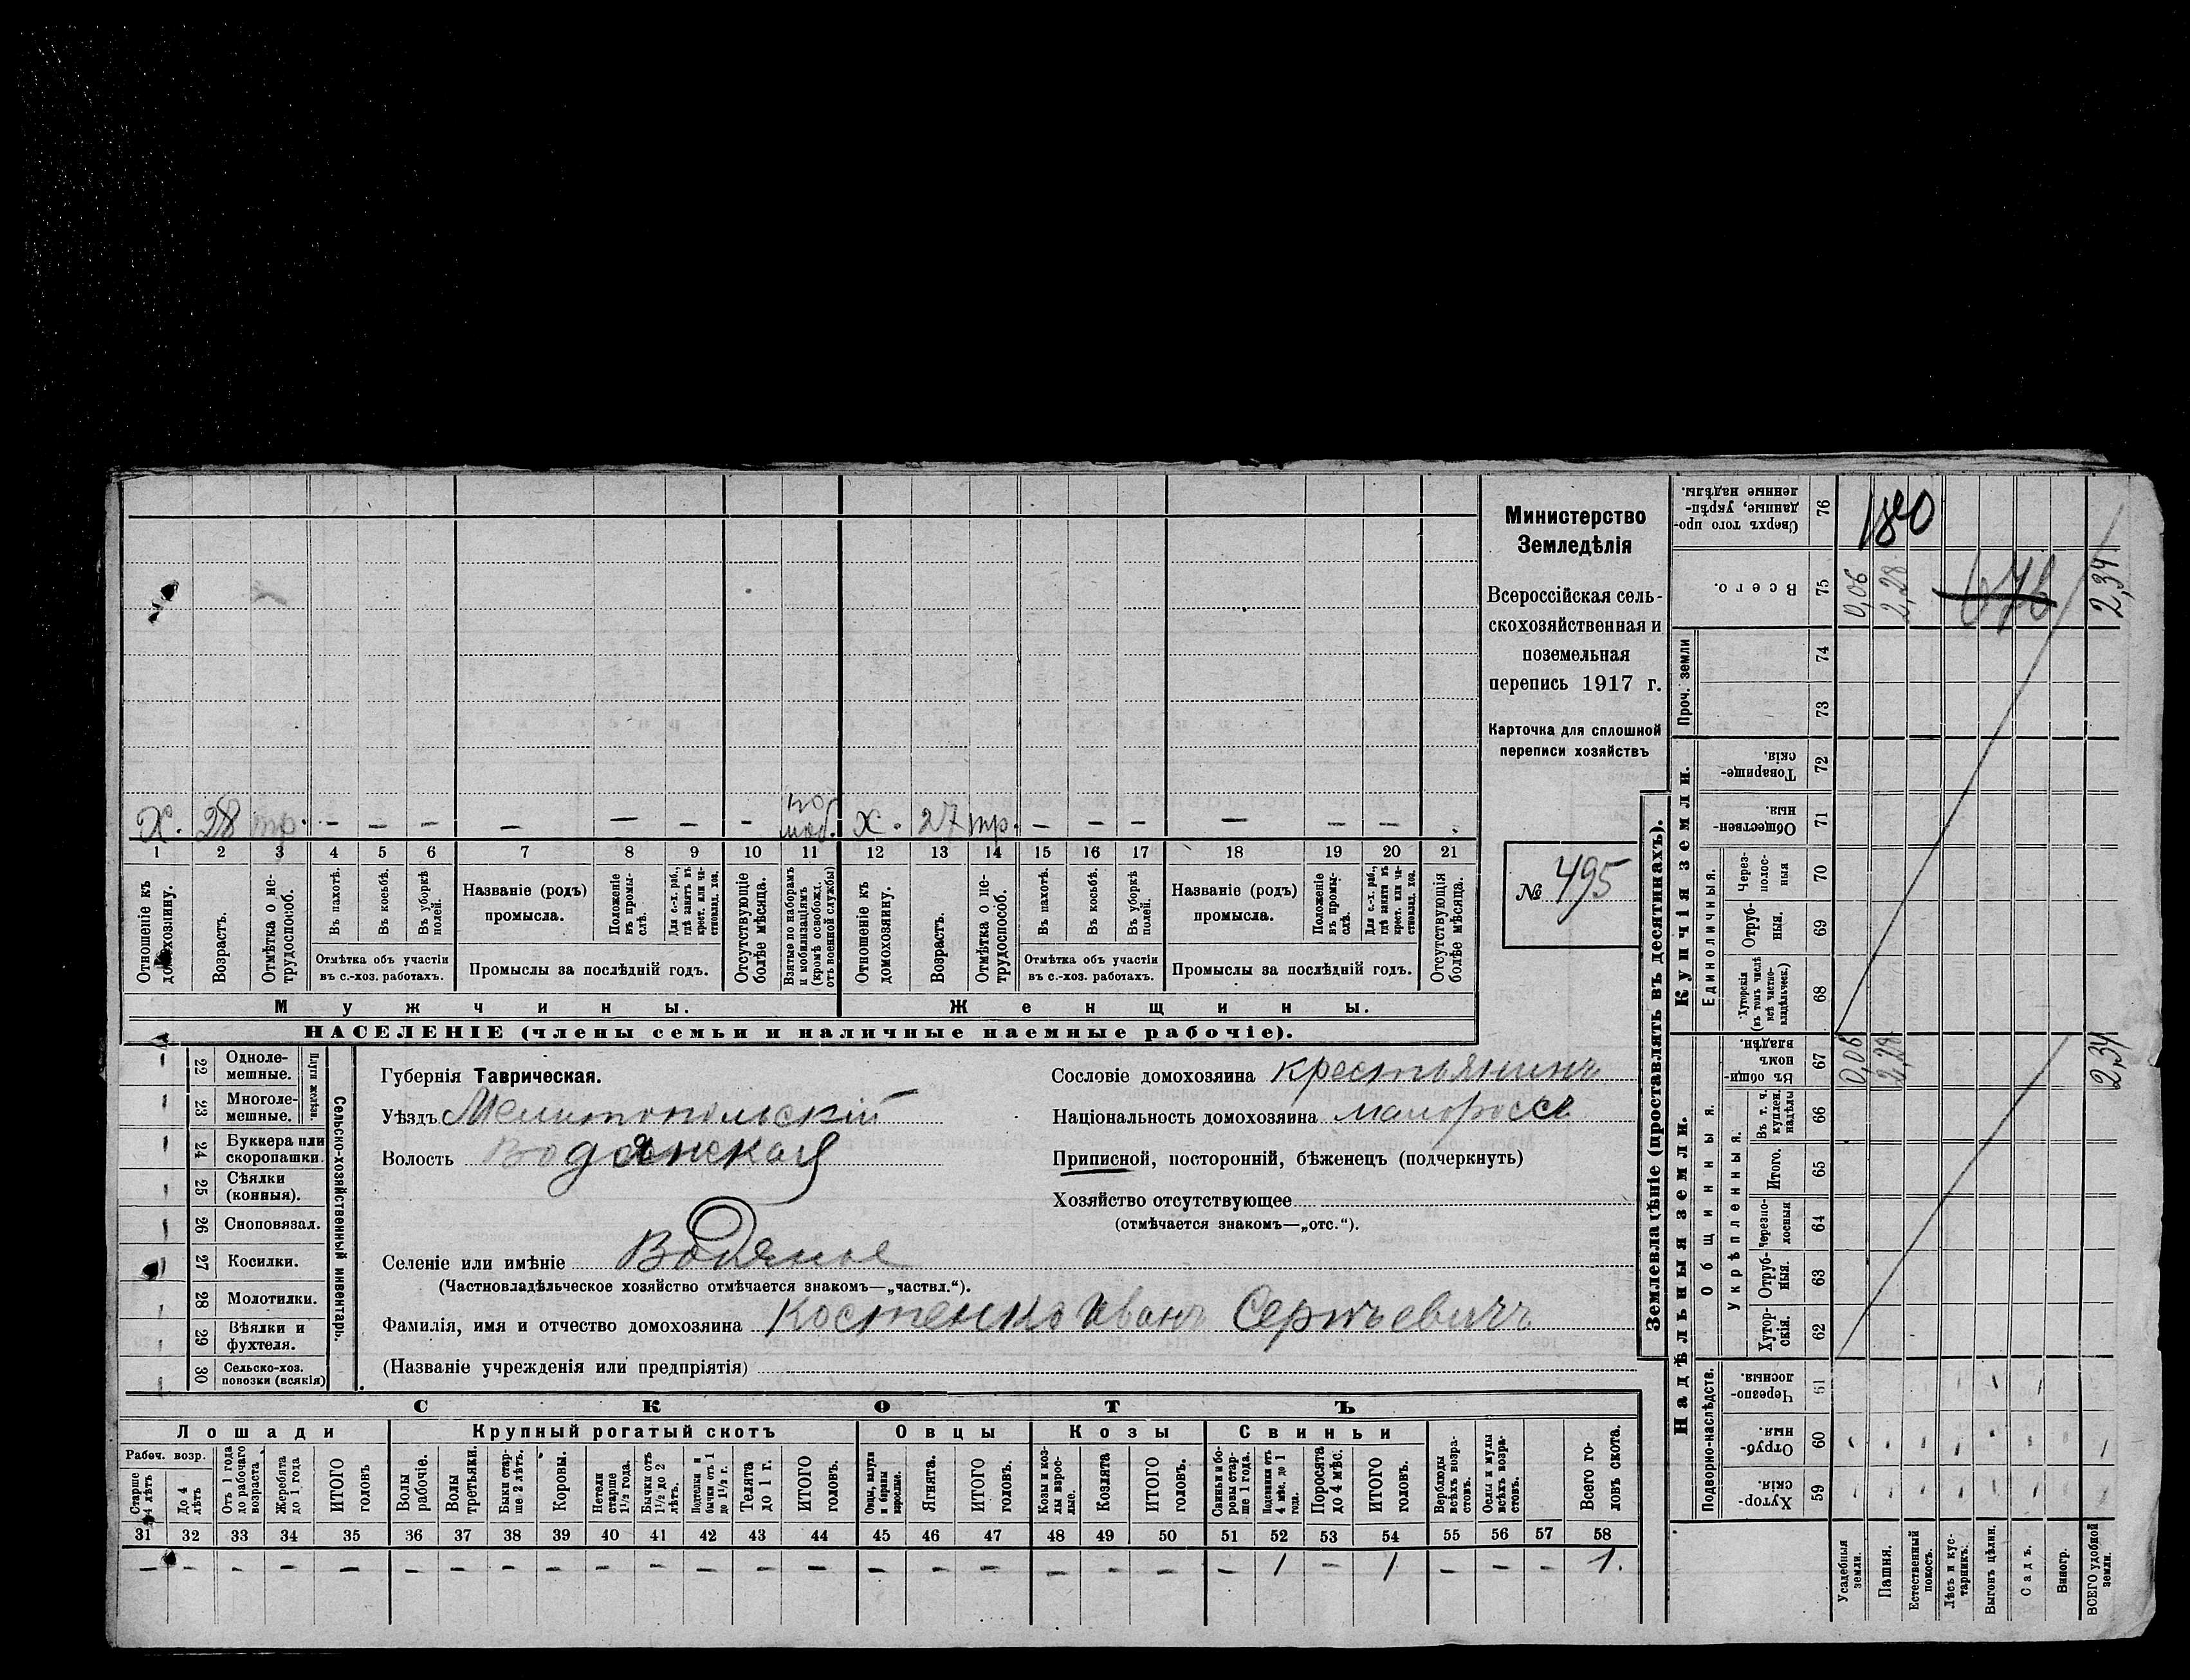 Министерство
Земледѣлія
Всероссійская сель-
скохозяйственная и
поземельная
перепись 1917 г.
Карточка для сплошной
переписи хозяйствъ
№ 495
Х. 28 тр. — — — — — — — по моб. х. 27 тр. — — — — — —
1 2 3 4 5 6 7 8 9 10 11 12 13 14 15 16 17 18 19 20 21
Отношеніе къ домохозяину.
Возрастъ.
Отмѣтка о не-трудоспособ.
Въ пахотѣ.
Въ косьбѣ.
Въ уборкѣ полей.
Названіе (родъ) промысла.
Положеніе въ промы-слѣ.
Для с.-х. раб., гдѣ занятъ въ крест. или ча-стновлад. хоз.
Отсутствующіе болѣе мѣсяца.
Взятые по наборамъ и мобилизаціямъ (кромѣ освобожд. отъ военной службы)
Отношеніе къ домохозяину.
Возрастъ.
Отмѣтка о не-трудоспособ.
Въ пахотѣ.
Въ косьбѣ.
Въ уборкѣ полей.
Названіе (родъ) промысла.
Положеніе въ промы-слѣ.
Для с.-х. раб., гдѣ занятъ въ крест. или ча-стновлад. хоз.
Отсутствующія болѣе мѣсяца.
Отмѣтка объ участіи въ с.-хоз. работахъ.
Промыслы за послѣдній годъ.
Отмѣтка объ участіи въ с.-хоз. работахъ.
Промыслы за послѣдній годъ.
Мужчины. Женщины.
НАСЕЛЕНІЕ (члены семьи и наличные наемные рабочіе).
Сельско-хозяйственный инвентарь.
Плуги желѣзн.
22 Одноле-мешные.
23 Многоле-мешные.
24 Буккера или скоропашки.
25 Сѣялки (конныя).
26 Сноповязал.
27 Косилки.
28 Молотилки.
29 Вѣялки и фухтеля.
30 Сельско-хоз. повозки (всякія)
Губернія Таврическая.
Уѣздъ Мелитопольскій
Волость Водянская
Селеніе или имѣніе Водяное
(Частновладѣльческое хозяйство отмѣчается знакомъ—„частвл.“).
Фамилія, имя и отчество домохозяина Костенко Иванъ Сергѣевичъ
(Названіе учрежденія или предпріятія)
Сословіе домохозяина крестьянинъ
Національность домохозяина малороссъ
Приписной, посторонній, бѣженецъ (подчеркнуть)
Хозяйство отсутствующее
(отмѣчается знакомъ—„отс.“).
СКОТЪ
Лошади Крупный рогатый скотъ Овцы Козы Свиньи
Рабоч. возр.
Старше 4 лѣтъ
До 4 лѣтъ
Отъ 1 года до рабочаго возраста
Жеребята до 1 года
ИТОГО головъ
Волы рабочіе.
Волы третьяки.
Быки стар-ше 2 лѣтъ.
Коровы.
Нетели старше 1½ года.
Бычки отъ 1½ до 2 лѣтъ.
Подтелки и бычки отъ 1 до 1½ г.
Телята до 1 г.
ИТОГО головъ.
Овцы, валухи и бараны взрослые.
Ягнята.
ИТОГО головъ.
Козы и коз-лы взрос-лые.
Козлята
ИТОГО головъ.
Свиньи и бо-ровы стар-ше 1 года.
Подсвинки отъ 4 мѣс. до 1 года.
Поросята до 4 мѣс.
ИТОГО головъ.
Верблюды всѣхъ возра-стовъ.
Ослы и мулы всѣхъ возра-стовъ.
Всего го-ловъ скота.
31 32 33 34 35 36 37 38 39 40 41 42 43 44 45 46 47 48 49 50 51 52 53 54 55 56 57 58
— — — — — — — — — — — — — — — — — — — — — 1 — 1 — — — 1.
Землевладѣніе (проставлять въ десятинахъ).
Сверхъ того про-данные, укрѣп-ленные надѣлы. 76 180
Всего. 75 0,06 2,28 676 2,34
Проч. земли 74 73
Купчія земли.
Товарище-скія. 72
Обществен-ныя. 71
Единоличныя.
Через-полос-ныя 70
Отруб-ныя. 69
Хуторскія (въ томъ числѣ всѣ частно-владѣльческ.) 68
Надѣльныя земли.
Общинныя.
Въ общи-номъ владѣн. 67 0,06 2,28 2,34
Укрѣпленныя.
Въ т. ч. куплен. надѣлы 66
Итого. 65
Черезпо-лосныя 64
Отруб-ныя. 63
Хутор-скія. 62
Подворно-наслѣдств.
Черезпо-лосныя. 61
Отруб-ныя. 60
Хутор-скія 59
Усадебныя земли.
Пашня.
Естественный покосъ.
Лѣсъ и кус-тарникъ.
Выгонъ цѣлин.
Садъ.
Виногр.
ВСЕГО удобной земли.